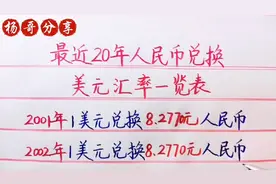 杨哥分享
最近20年人民币兑换
美元汇率一览表
2001年1美元兑换8.2770元人民币
2002年1美元兑换8.2770元人民币